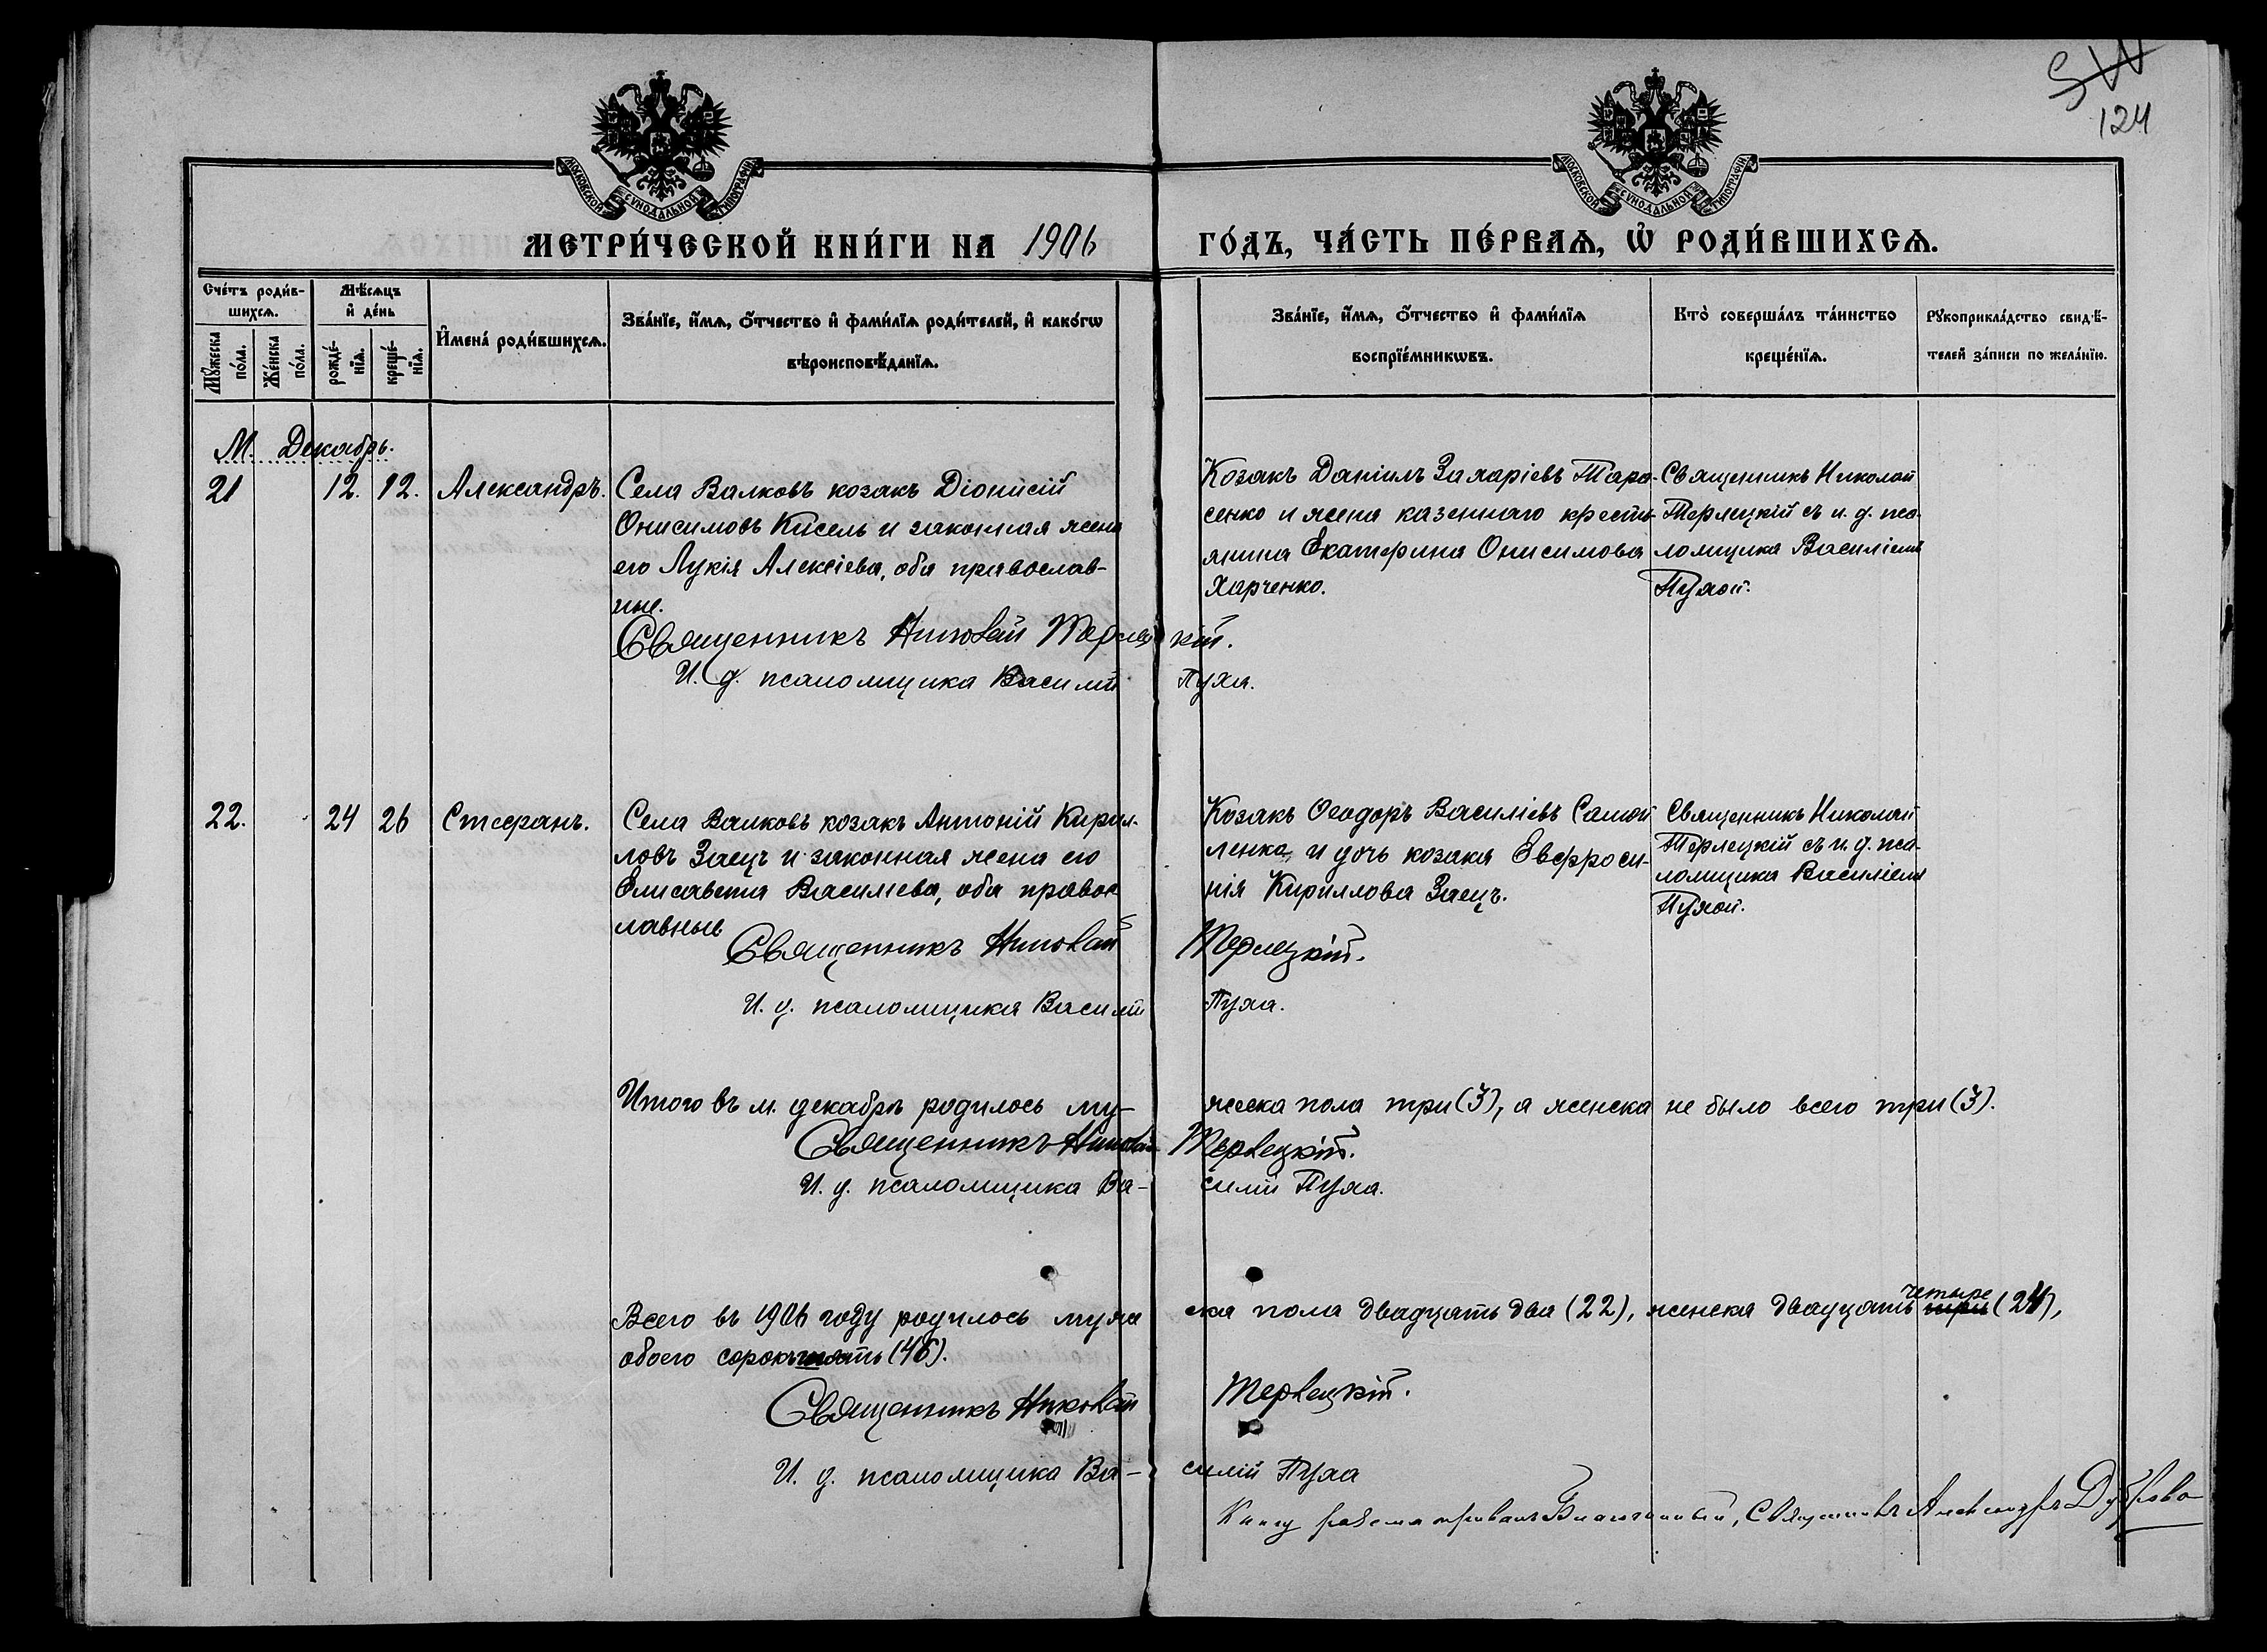 SW
124
МОСКОВСКОЙ СѴНОДАЛЬНОЙ ТИПОГРАФІИ
МОСКОВСКОЙ СѴНОДАЛЬНОЙ ТИПОГРАФІИ
МЕТРИ́ЧЕСКОЙ КНИ́ГИ НА 1906 ГО́ДЪ, ЧА́СТЬ ПЕ́РВАѦ, Ѽ РОДИ́ВШИХСѦ.
Сче́тъ роди́в-
шихсѧ.
Мꙋ́жеска по́ла.
Же́нска по́ла.
Мѣ́сѧцъ
и҆ де́нь
рожде́-
нїѧ.
креще́-
нїѧ.
И҆мена̀ роди́вшихсѧ.
Зва́нїе, и҆́мѧ, ѻ҆́тчество и҆ фами́лїѧ роди́телей, и҆ како́гѡ
вѣроисповѣ́данїѧ.
Зва́нїе, и҆́мѧ, ѻ҆́тчество и҆ фами́лїѧ
воспрїе́мникѡвъ.
Кто̀ соверша́лъ та́инство
креще́нїѧ.
Рꙋкоприкла́дство свидѣ́-
телей за́писи по жела́нїю.
М. Декабрь.
21 12. 12. Александръ.
Села Валковъ козакъ Діонисій
Онисимовъ Кисель и законная жена
его Лукія Алексіева, оба православ-
ные.
Козакъ Даніилъ Захаріевъ Тара-
сенко и жена казеннаго кресть-
янина Екатерина Онисимова
Харченко.
Священникъ Николай
Терлецкій съ и. д. пса-
ломщика Василіемъ
Пухой.
Священникъ Николай Терлецкій.
И. д. псаломщика Василій Пуха.
22. 24 26 Стефанъ.
Села Валковъ козакъ Антоній Кирил-
ловъ Заецъ и законная жена его
Елисавета Василіева, оба правос
лавные
Козакъ Ѳеодоръ Василіевъ Самой
ленко и дочь козака Евфроси-
нія Кириллова Заецъ.
Священникъ Николай
Терлецкій съ и. д. пса-
ломщика Василіемъ
Пухой.
Священникъ Николай Терлецкій.
И. д. псаломщика Василій Пуха.
Итого въ м. декабрѣ родилось му- жеска пола три (3), а женска не было всего три (3).
Священникъ Николай Терлецкій.
И. д. псаломщика Ва- силій Пуха.
четыре
Всего въ 1906 году родилось муже ска пола двадцать два (22), женска двадцать три (24),
обоего сорокъ (46).
Священникъ Николай Терлецкій.
И. д. псаломщика Ва- силій Пуха
Книгу Благочинный, Священникъ Александръ Дуброва